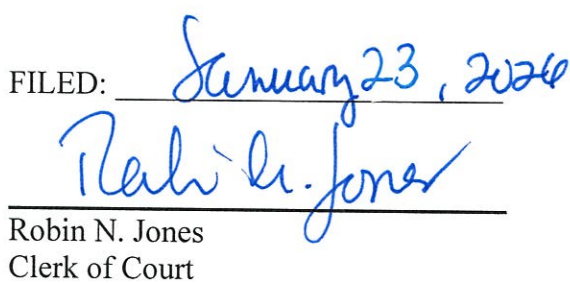 FILED: January 23, 2026
Robin N. Jones
Robin N. Jones
Clerk of Court